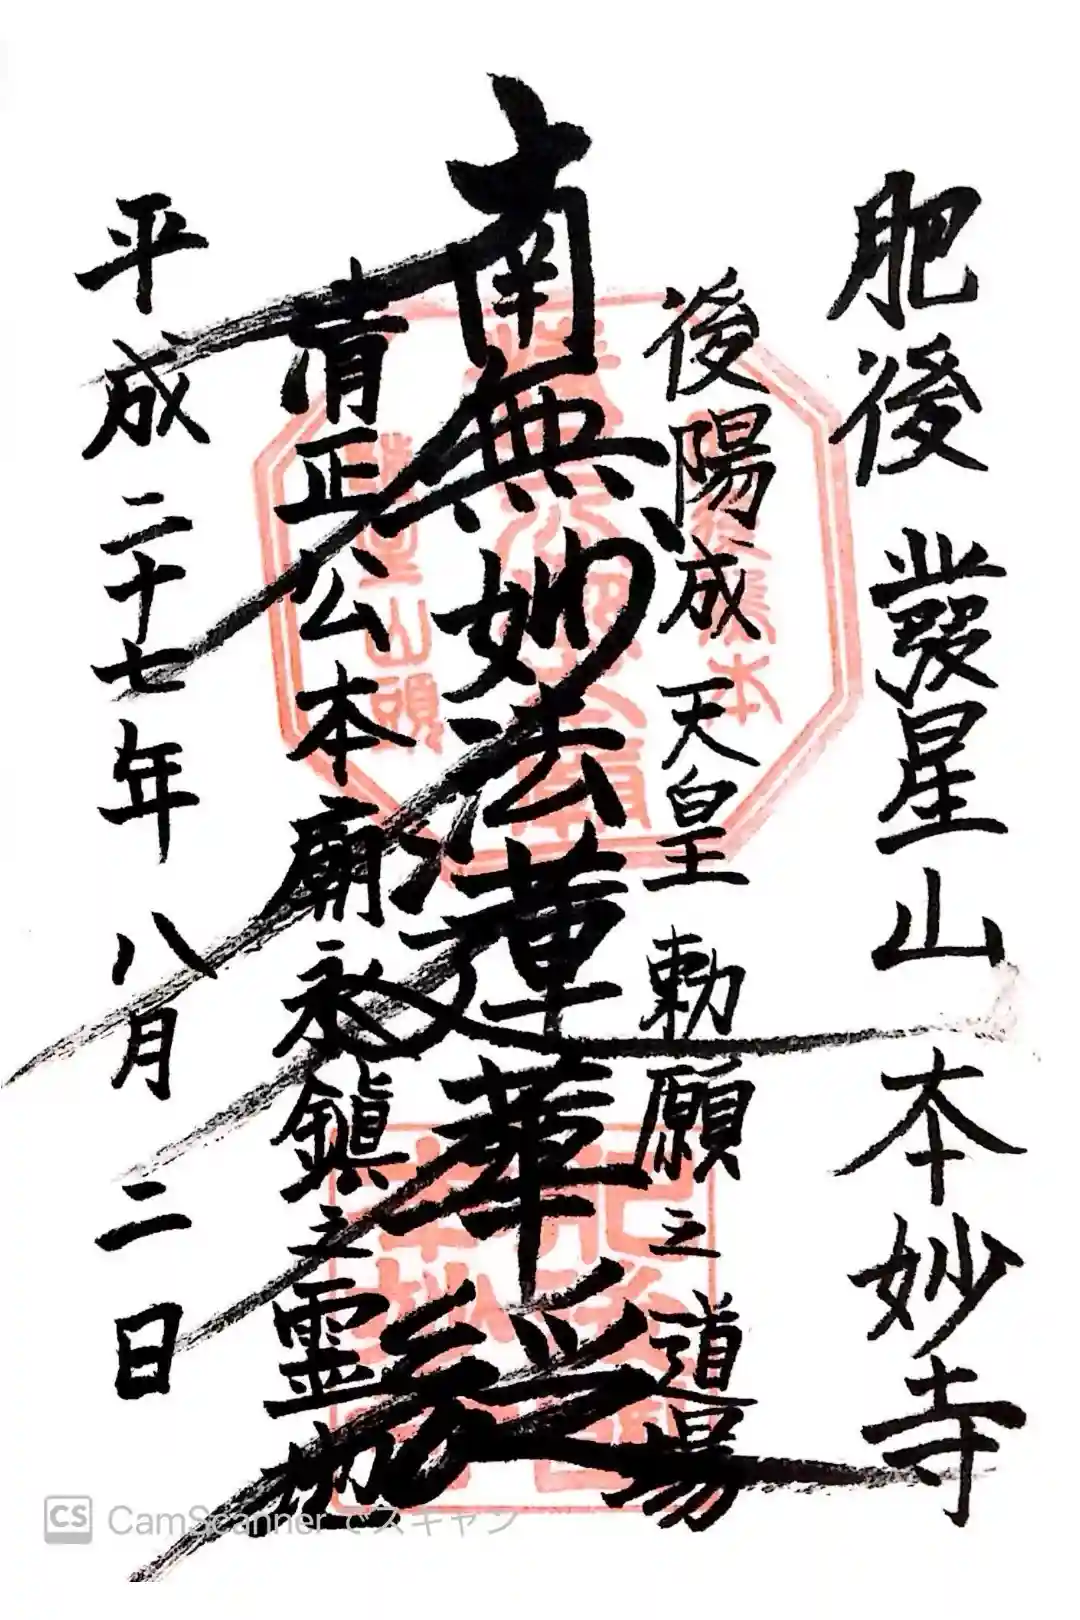 肥後 發星山 本妙寺
後陽成 天皇 勅願之道場
南無妙法蓮華経
清正公本廟永鎮之霊地
平成二十七年 八月二日
CS CamScanner でスキャン